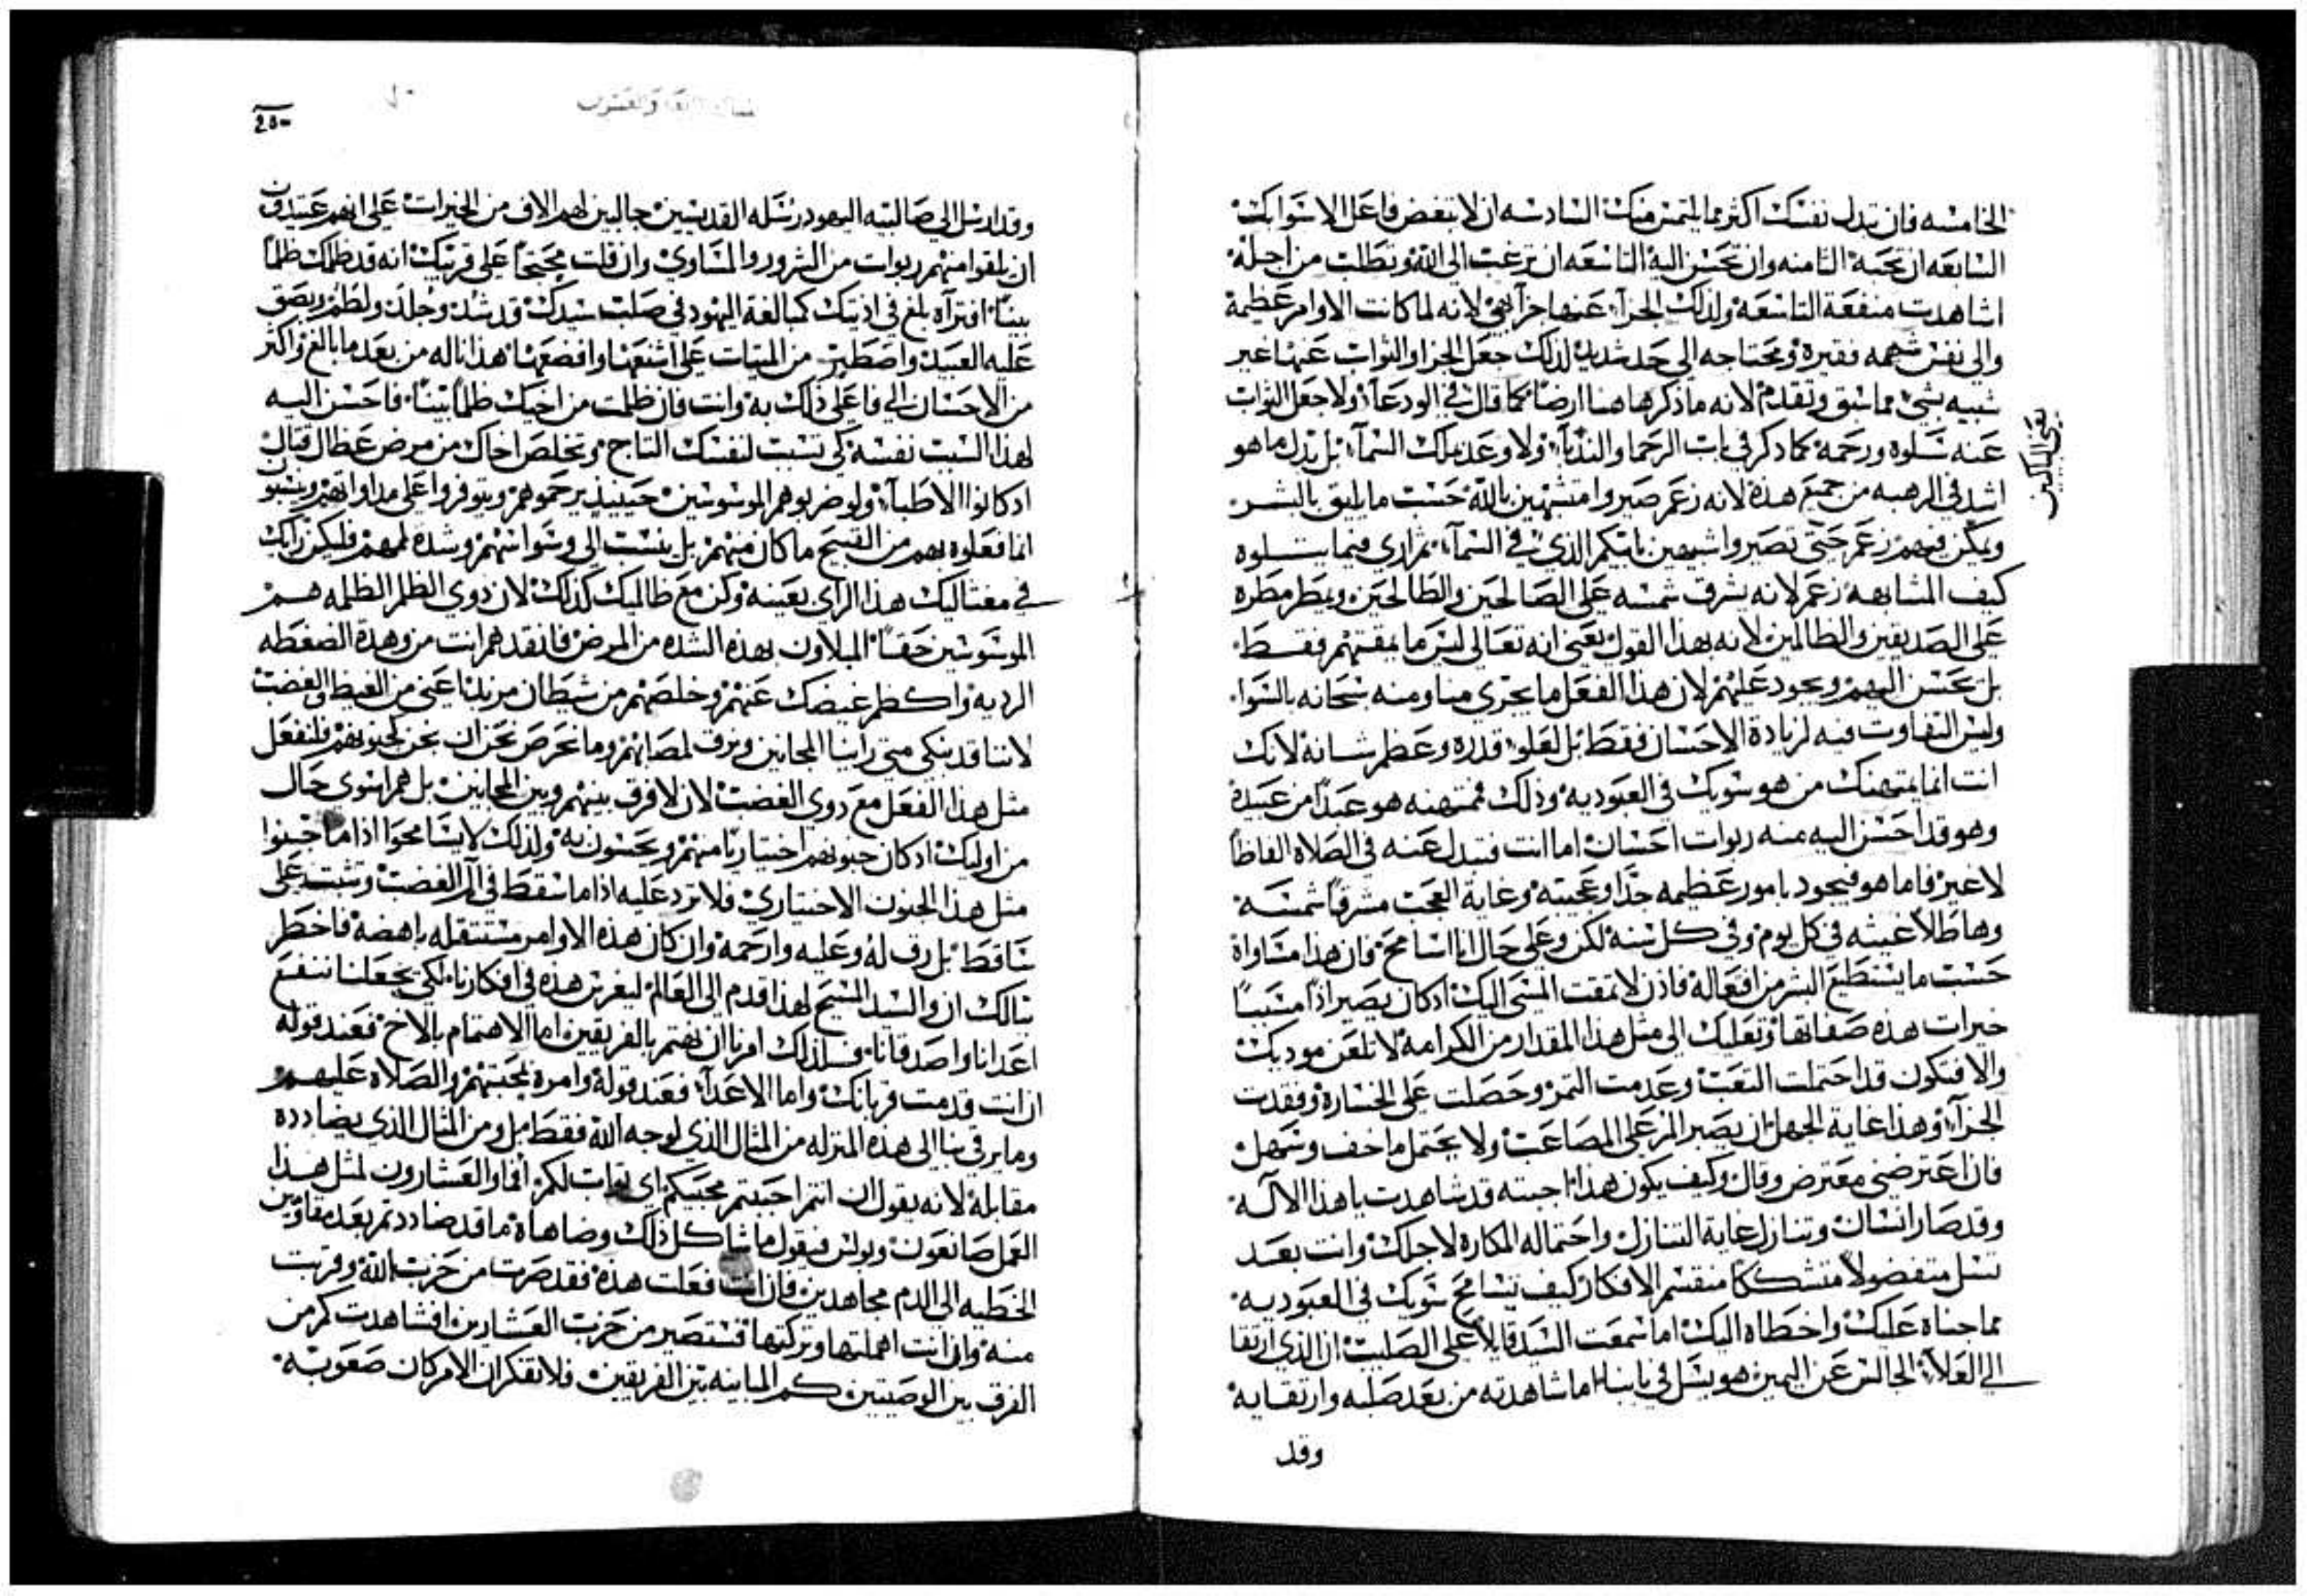 الخامسه فان تبدل نفسك اكثر مما التمس منك السادسه ان لا تبغض فاعل الاسوا بك
السابعه ان تحبه الثامنه وان تحسن اليه التاسعه ان ترغب الى الله وتطلب من اجله
اشاهدت منفعة التاسعه ولذلك الجزآ عنها جزآ بهي لانه لما كانت الاوامر عظيمة
والى نفس شهمه فقيره ومحتاجه الى جد شديد لذلك جعل الجزا والثواب عنها غير
شبيه بشي مما سبق وتقدم لانه ما ذكر هاهنا ارضًا كما قال في الودعآ ولا جعل الثواب
عنه سلوه ورحمه كما ذكر في باب الرحما والندبآ ولا وعد بملك السمآ بل بدل ما هو
يعني الباكين
اشد في الرهبه من جميع هذه لانه زعم صيروا متشبهين بالله حسب ما يليق بالبشر
ويمكن فيهم زعم حتى تصيروا شبيهين بابيكم الذي في السمآ ثم اري فيما يتلوه
كيف المشابهه زعم لانه يشرق شمسه على الصالحين والطالحين ويمطر مطره
على الصديقين والظالمين لانه بهذا القول يعني انه تعالى ليس ما يمقتهم فقط
بل يحسن اليهم ويجود عليهم لان هذا الفعل ما يجري منا ومنه سبحانه بالسوا
وليس التفاوت فيه لزيادة الاحسان فقط بل لعلو قدره وعظم شانه لانك
انت انما يمتهنك من هو سويك في العبوديه وذلك فممتهنه هو عبدًا من عبيده
وهو قد احسن اليه منه ربوات احسان اما انت فتبدل عنه في الصلاه الفاظًا
لا غير فاما هو فيجود بامور عظيمه جدًا وعجيبه وغاية العجب مشرقًا شمسه
وهاطلًا غيثه في كل يوم وفي كل سنه لكن وعلى حال انا اسامح فان هذا مساواة
حسب ما يستطيع البشر من افعاله فاذن لا تمقت المسي اليك اذ كان يصير اذًا مسببًا
خيرات هذه صفاتها وتعليك الى مثل هذا المقدار من الكرامه لا تلعن موديك
والا فتكون قد احتملت التعب وعدمت الثمر وحصلت على الخساره وفقدت
الجزآ وهذا غاية الجهل ان يصبر المر على المصاعب ولا يحتمل ما خف وسهل
فان اعترضني معترض وقال وكيف يكون هذا اجبته قد شاهدت ياهذا الاله
وقد صار انسان وتنازل غاية التنازل واحتماله المكاره لاجلك وانت بعد
تسل متفضولًا متشككًا منقسم الافكار كيف تسامح سويك في العبوديه
مما جناه عليك واخطاه اليك اما سمعت السيد قايلًا على الصليب ان الذي ارتقا
الى العلآ الجالس عن اليمين هو يسل في بابنا اما شاهدته من بعد صلبه وارتقايه
وقد
250
وقد ارسل الى صالبيه اليهود رسله القديسين جالبين لهم الاف من الخيرات على انهم عتيدون
ان يلقوا منهم ربوات من الشرور والمساوي وان قلت محتجًا على قريبك انه قد ظلمك ظلمًا
بينًا افتراه بلغ في اذيتك كمبالغة اليهود في صلب سيدك قد شد وجلد ولطم وبصق
عليه العبيد واصطبر من الميتات على اشنعها وافضحها هذا ناله من بعد ما بالغ واكثر
من الاحسان الى فاعلي ذلك به وانت فان ظلمت من اخيك ظلمًا بينًا فاحسن اليه
لهذا السبب نفسه كي تسبب لنفسك التاج وتخلص اخاك من مرض عظال قتال
اذ كانوا الاطبآ ولو ضربوهم الموسوسين حينيذ يرحموهم ويتوفروا على مداواتهم وينسبو
انما فعلوه بهم من القبيح ما كان منهم بل ينسب الى وسواسهم وشدة المهم فليكن رايك
في مغتاليك هذا الراي بعينه وكن مع ظالميك كذلك لان ذوي الظلم الظلمه هم
الموسوسين حقًا المبلاون بهذه الشده من المرض فانقدهم انت من وهدة الضغطه
الرديه واكظم غيضك عنهم وخلصهم من شيطان مريد اعني من الغيظ والغضب
لاننا قد نبكي متى راينا المجانين ونرق لمصابهم وما نحرص نحن ان نجن كجنونهم فلنفعل
مثل هذا الفعل مع ذوي الغضب لان لا فرق بينهم وبين المجانين بل هم اسوى حال
من اوليك اذ كان جنونهم اختياريًا منهم ويحسون به ولذلك لا يسامحوا اذا ما جنوا
مثل هذا الجنون الاختياري فلا ترد عليه اذا ما سقط في الم الغضب وتثبت على
ساقط بل رق له وعليه وارحمه وان كان هذه الاوامر مستثقله باهضه فاخطر
ببالك ان والسيد المسيح لهذا قدم الى العالم ليغرس هذه في افكارنا لكي يجعلنا ننفع
اعدانا واصدقانا فلذلك امرنا ان نهتم بالفريقين اما الاهتمام بالاخ فعند قوله
ان انت قدمت قربانك واما الاعدآ فعند قوله وامره بمحبتهم والصلاه عليهم
وما يرقي بنا الى هذه المنزله من المثال الذي لوجه الله فقط بل ومن المثال الذي يضادده
مقابلة لانه يقول ان انتم احببتم محبيكم اي ثواب لكم أفما والعشارون لمثل هذا
العمل صانعون وبولس فيقول ما شاكل ذلك وضاهاه ما قد ضاددتم بعد مقاومين
الخطيه الى الدم مجاهدين فان انت فعلت هذه فقد صرت من حزب الله وقربت
منه وان انت اهملتها وتركتها فستصير من حزب العشارين افشاهدت كم من
الفرق بين الوصيتين كم المباينه بين الفريقين فلا تفكر ان الامر كان صعوبته